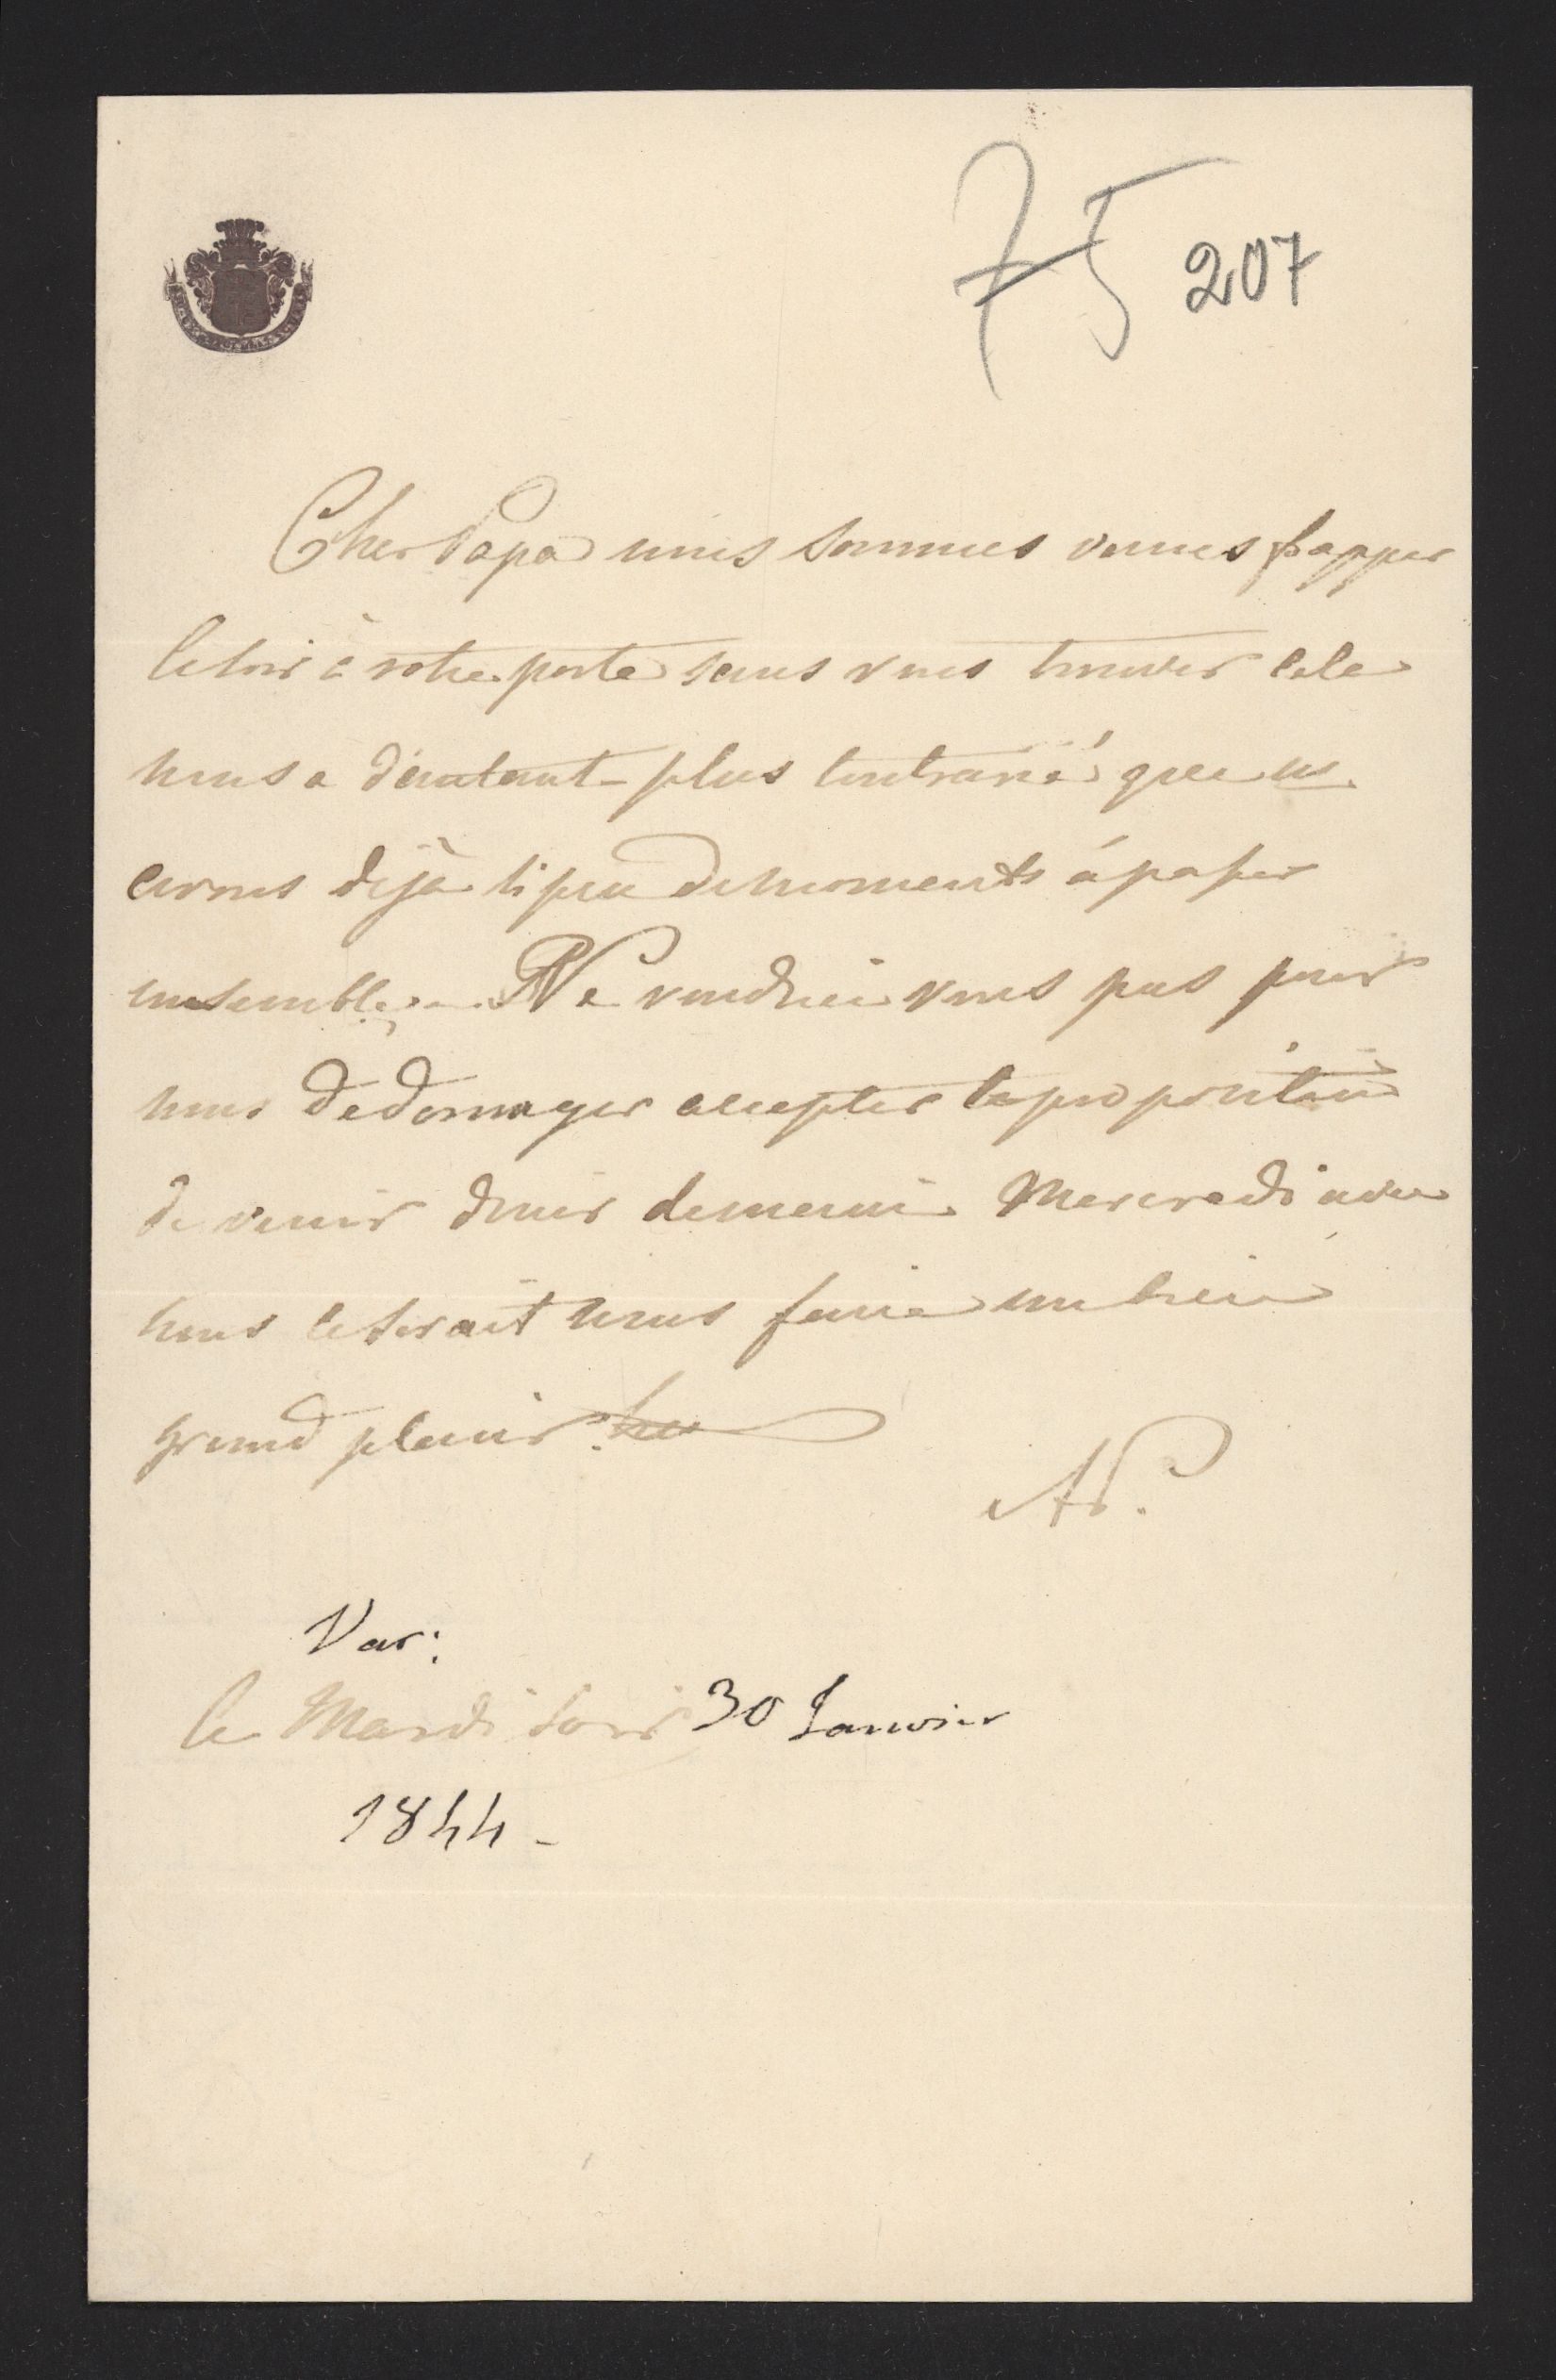 75 207
Cher Papa nous sommes venus frapper
ce soir à votre porte sans vous trouver cela
nous a d'autant plus contrarié que ns.
avons déjà si peu de moments à passer
ensemble. Ne voudriez vous pas pour
nous dédomager accepter la proposition
de venir diner demain Mercredi avec
nous ce serait nous faire un bien
grand plaisir.
AP.
Var:
le Mardi soir 30 Janvier
1844 -